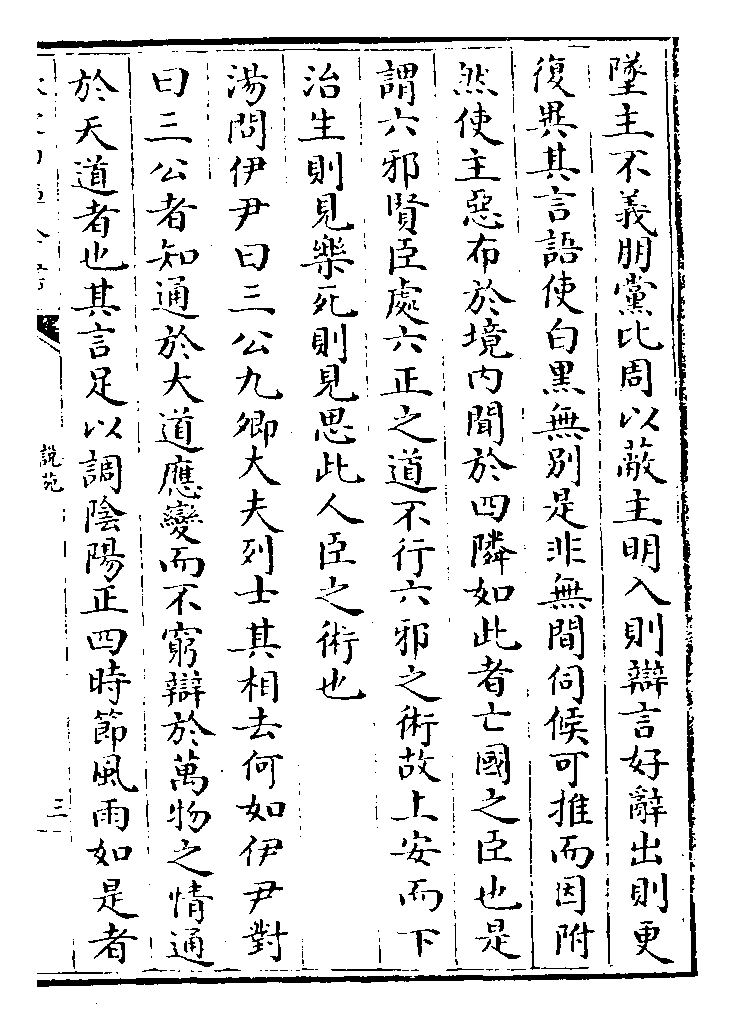 墜主不義朋黨比周以蔽主明入則辯言好辭出則更
復異其言語使白黑無別是非無間伺候可推而因附
然使主惡布於境内聞於四隣如此者亡國之臣也是
謂六邪賢臣處六正之道不行六邪之術故上安而下
治生則見樂死則見思此人臣之術也
湯問伊尹曰三公九卿大夫列士其相去何如伊尹對
曰三公者知通於大道應變而不窮辯於萬物之情通
於天道者也其言足以調陰陽正四時節風雨如是者
說苑
三